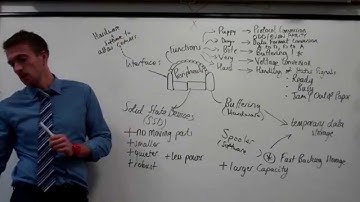 Hardware
Interface
functions
Peripherals
Puppy → Protocol Conversion
Dogs → Data Format Conversion
A to D, D to A
Bite → Buffering
Very → Voltage Conversion
Hard → Handling of Status Signals
- Ready
- Busy
- Jam / Out of Paper
Solid State Devices
(SSD)
+ no moving parts
+ smaller
+ quieter
+ less power
+ robust
Buffering
(Hardware)
temporary data
storage
Spooler
(Software)
Fast Backing Storage
+ larger Capacity